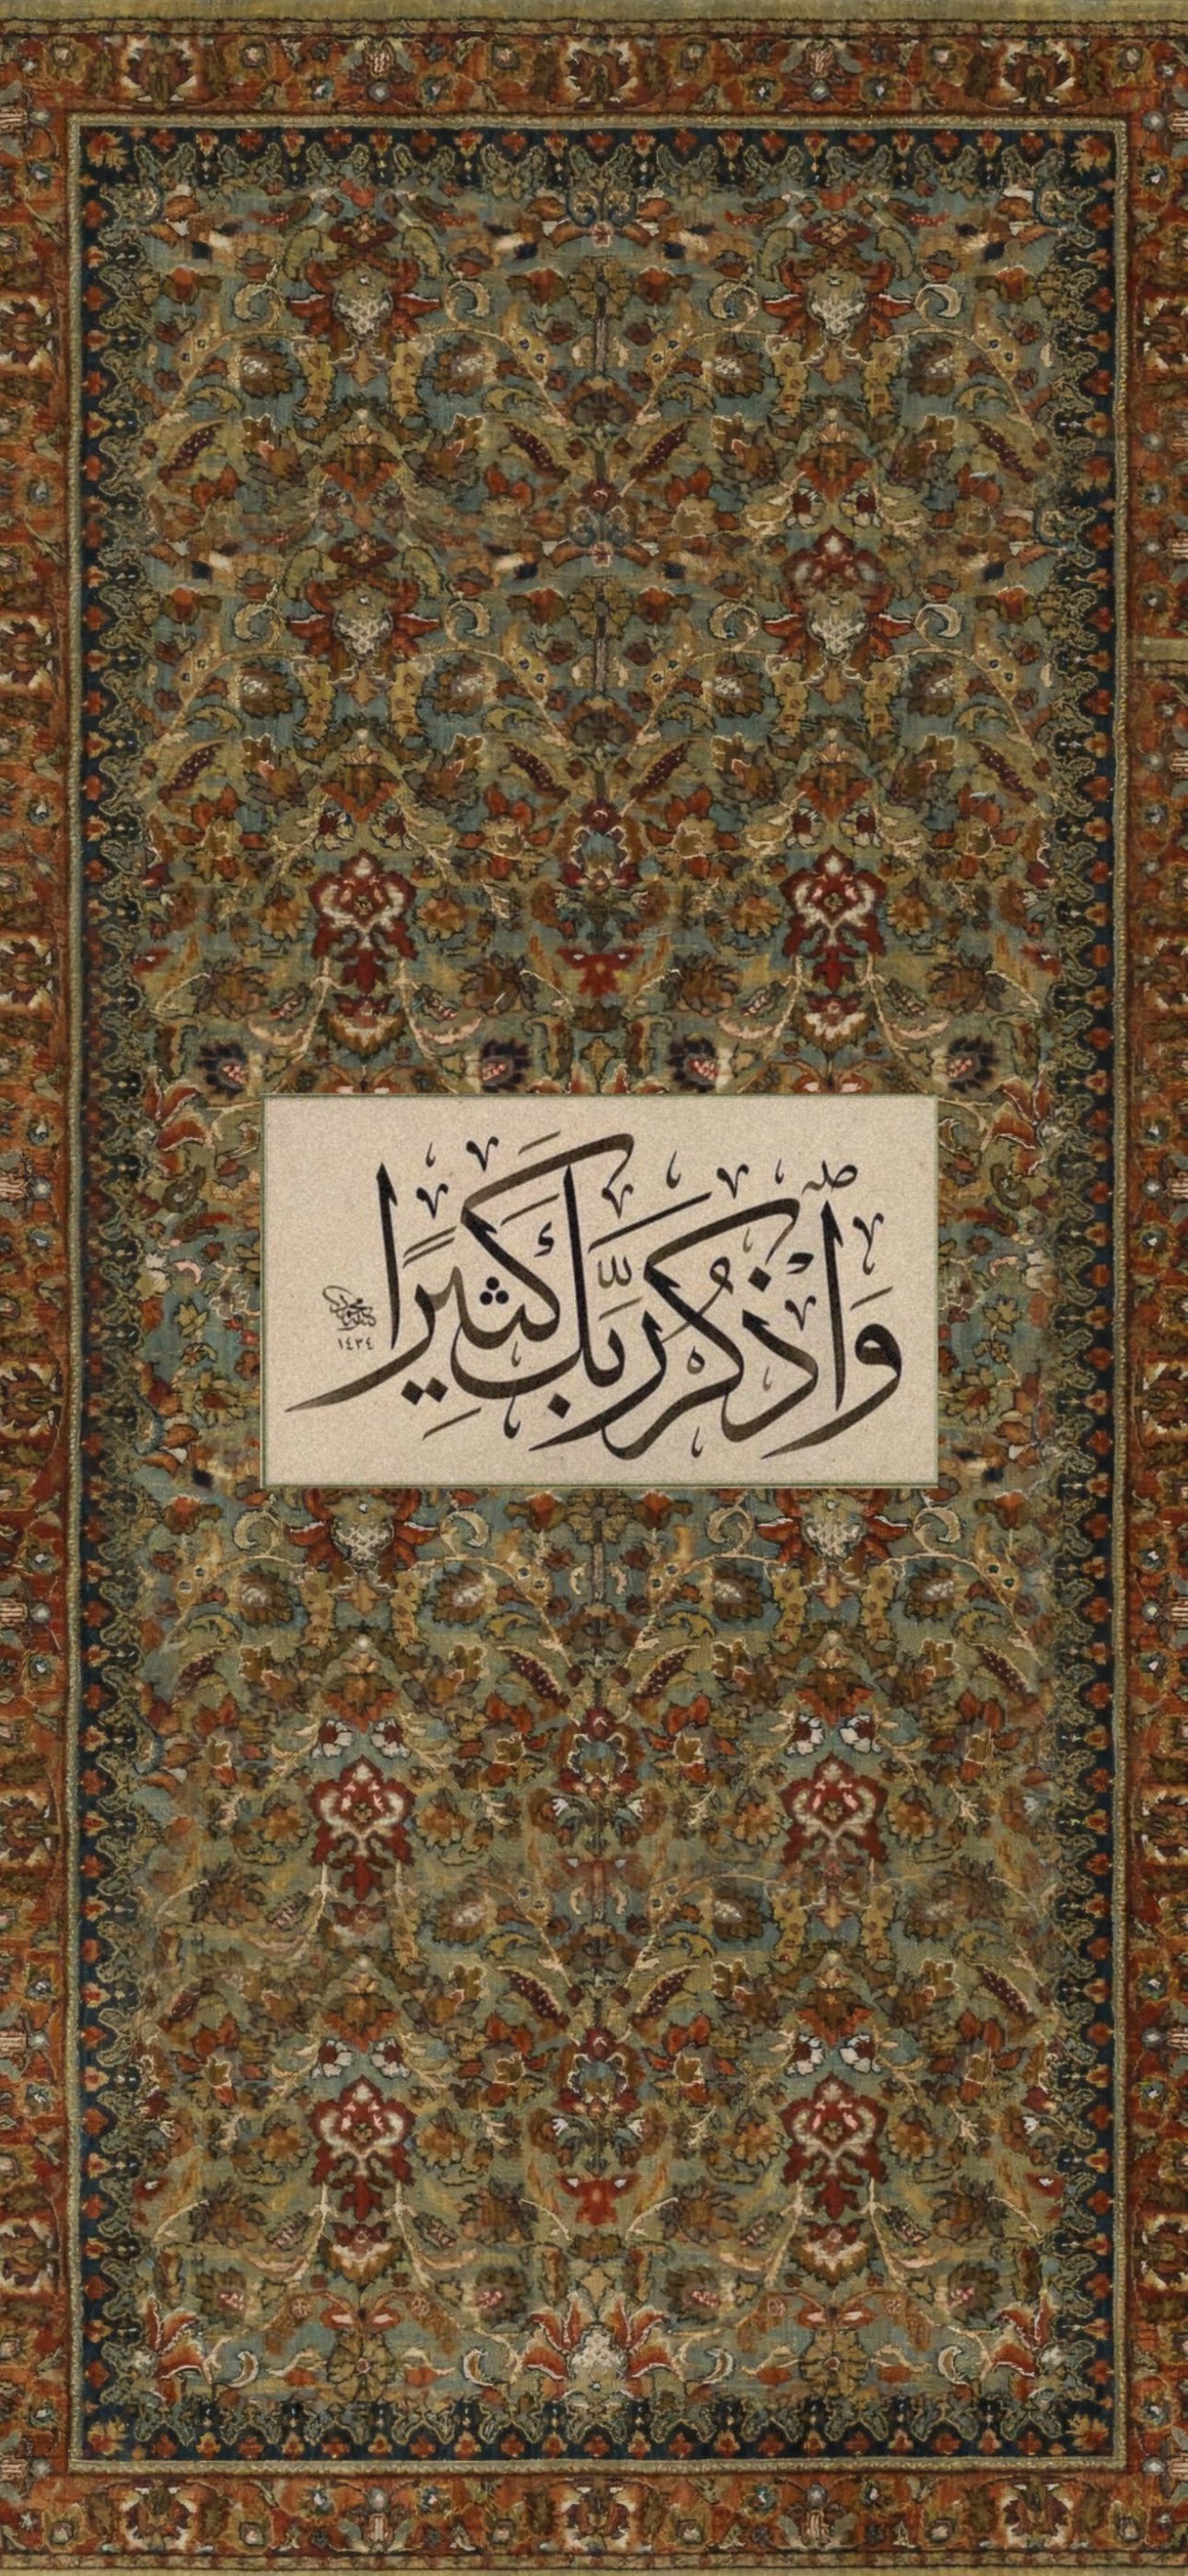 وَٱذْكُر رَّبَّكَ كَثِيرًا
١٤٣٤